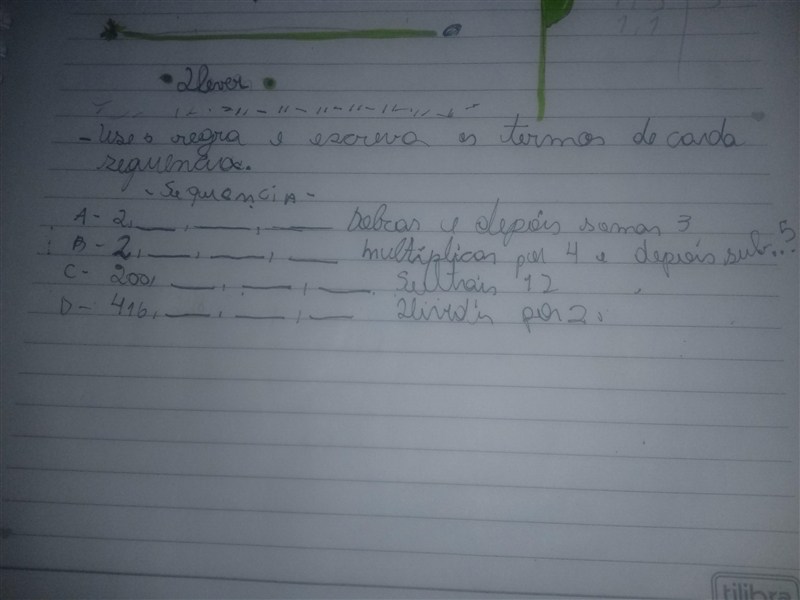 Dever
- Use a regra e escreva os termos de carda
sequências.
- Sequência -
A - 2, ___, ___, ___ Dobras e depois somas 3
B - 2, ___, ___, ___ multiplicas por 4 e depois sub. 5
C - 200, ___, ___, ___. Subtrais 12
D - 416, ___, ___, ___ Dividis por 2.
1,1
tilibra